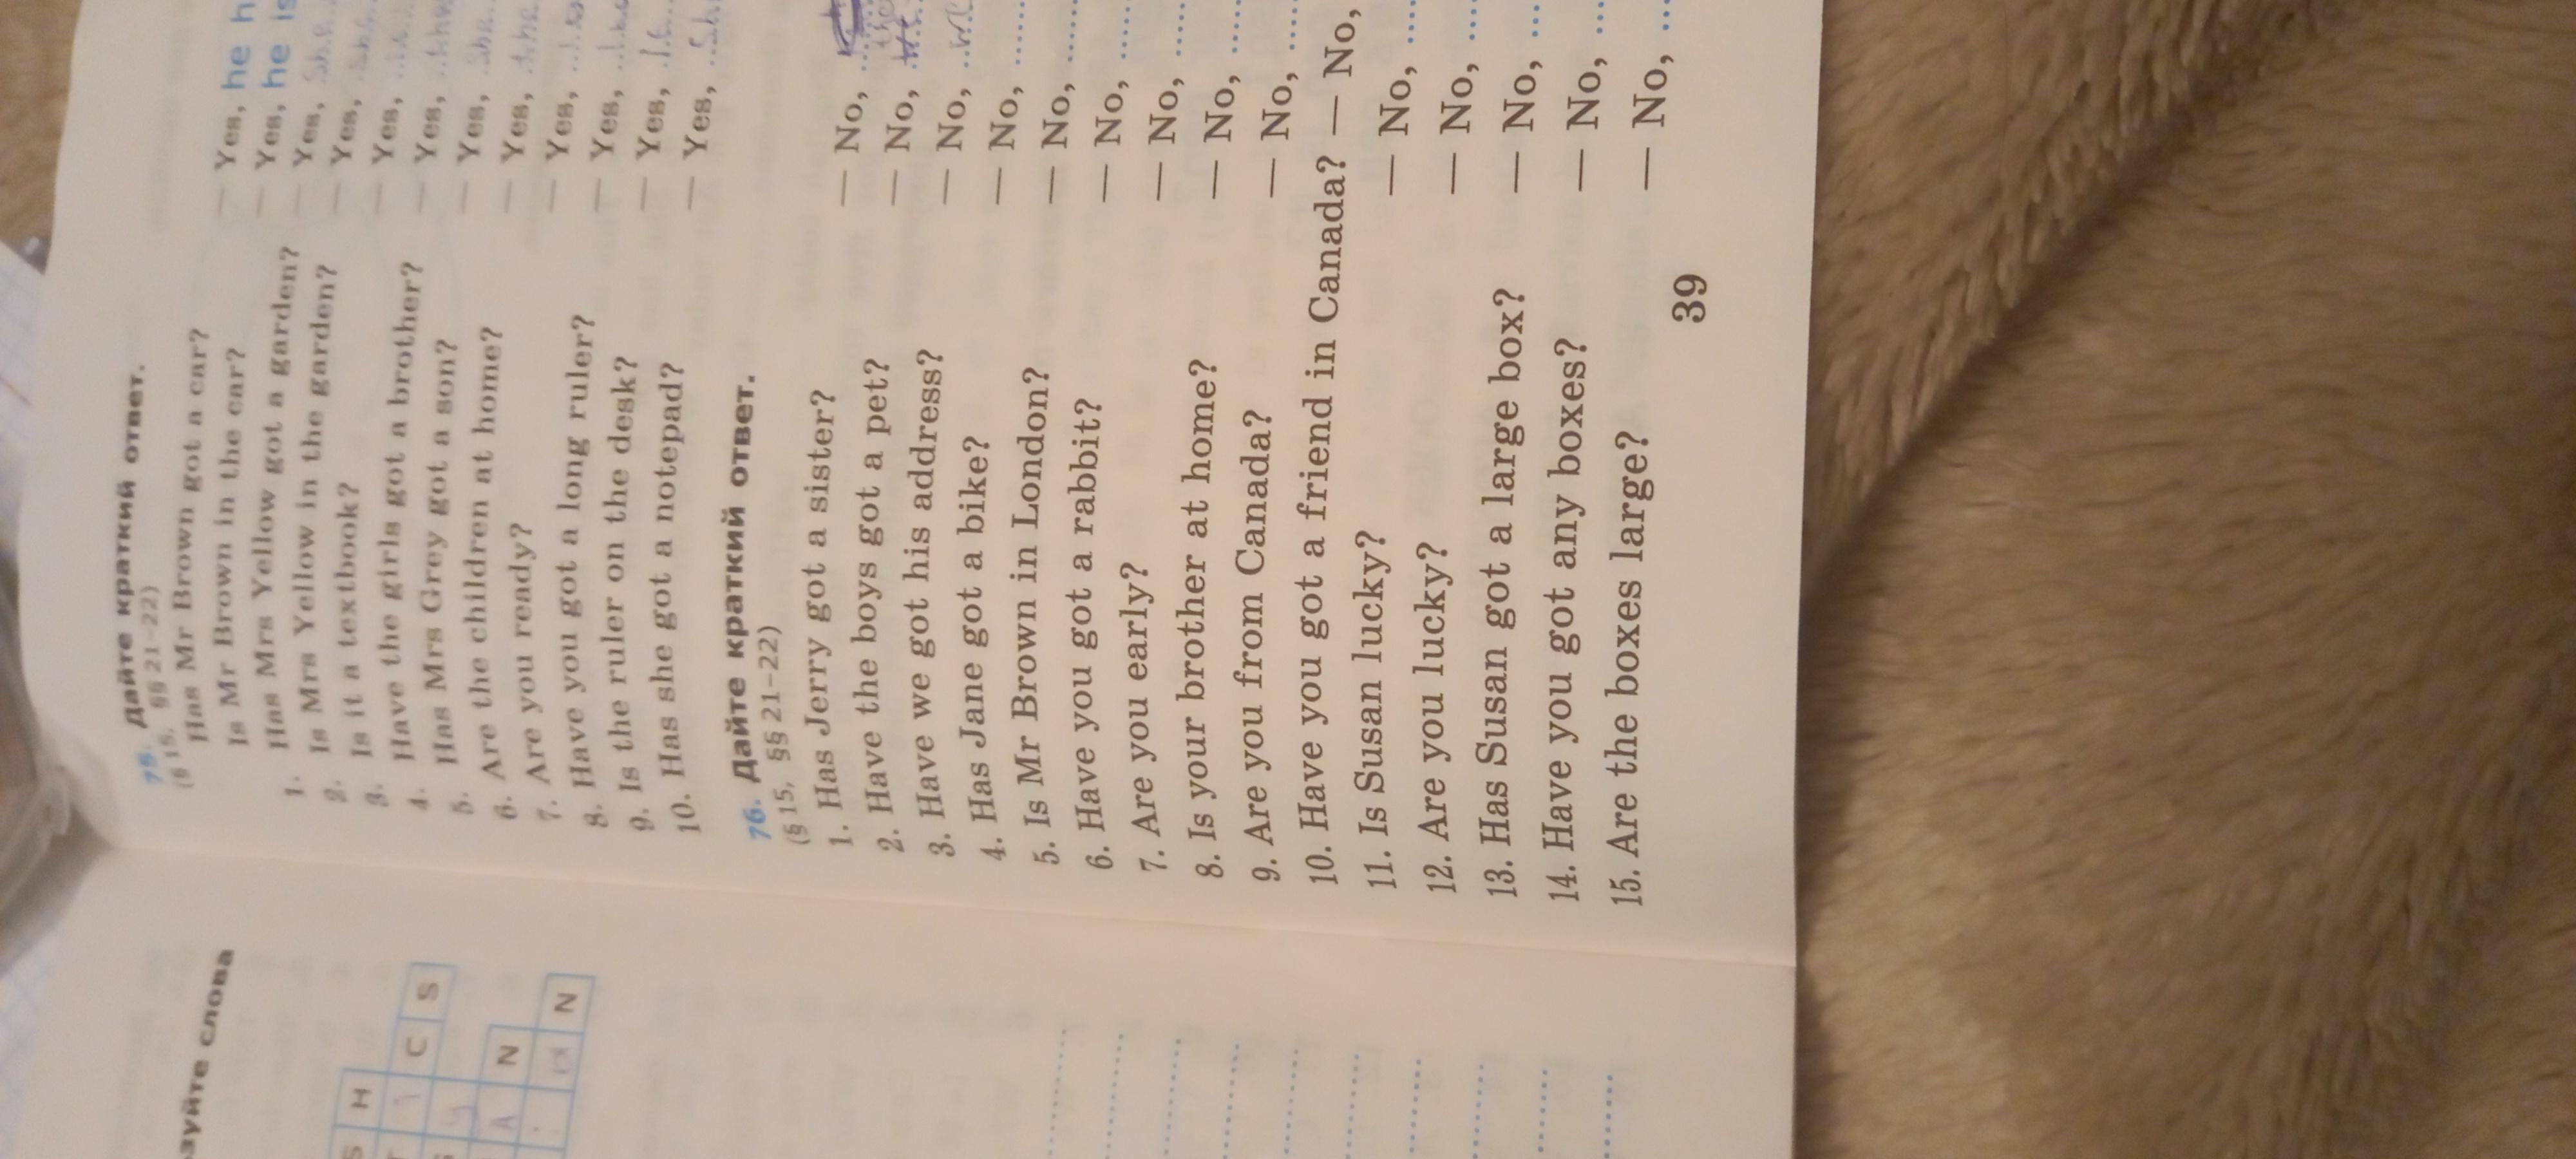 зуйте слова
S H
C S
A N
N
75. Дайте краткий ответ.
(§ 15, §§ 21–22)
Has Mr Brown got a car? — Yes, he h
Is Mr Brown in the car? — Yes, he is
1. Has Mrs Yellow got a garden? — Yes, she
2. Is Mrs Yellow in the garden? — Yes, she
3. Is it a textbook? — Yes,
4. Have the girls got a brother? — Yes,
5. Has Mrs Grey got a son? — Yes, she
6. Are the children at home? — Yes, the
7. Are you ready? — Yes,
8. Have you got a long ruler? — Yes,
9. Is the ruler on the desk? — Yes,
10. Has she got a notepad? — Yes, she
76. Дайте краткий ответ.
(§ 15, §§ 21–22)
1. Has Jerry got a sister? — No,
2. Have the boys got a pet? — No,
3. Have we got his address? — No, we
4. Has Jane got a bike? — No,
5. Is Mr Brown in London? — No,
6. Have you got a rabbit? — No,
7. Are you early? — No,
8. Is your brother at home? — No,
9. Are you from Canada? — No,
10. Have you got a friend in Canada? — No,
11. Is Susan lucky? — No,
12. Are you lucky? — No,
13. Has Susan got a large box? — No,
14. Have you got any boxes? — No,
15. Are the boxes large? — No,
39